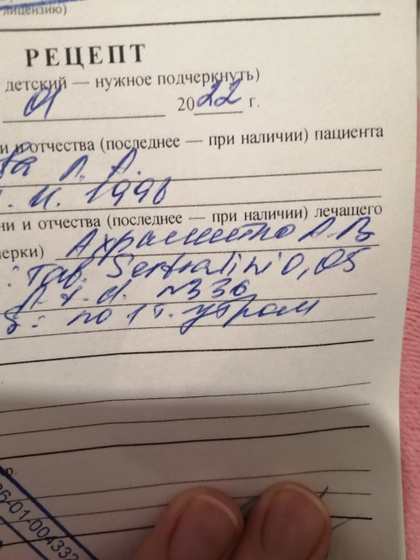 лицензию)
РЕЦЕПТ
детский — нужное подчеркнуть)
01 2022 г.
и отчества (последнее — при наличии) пациента
1996
ни и отчества (последнее — при наличии) лечащего
мерки)
Tab. Sertralini 0,05
D.t.d. №36
S: по 1 т. утром